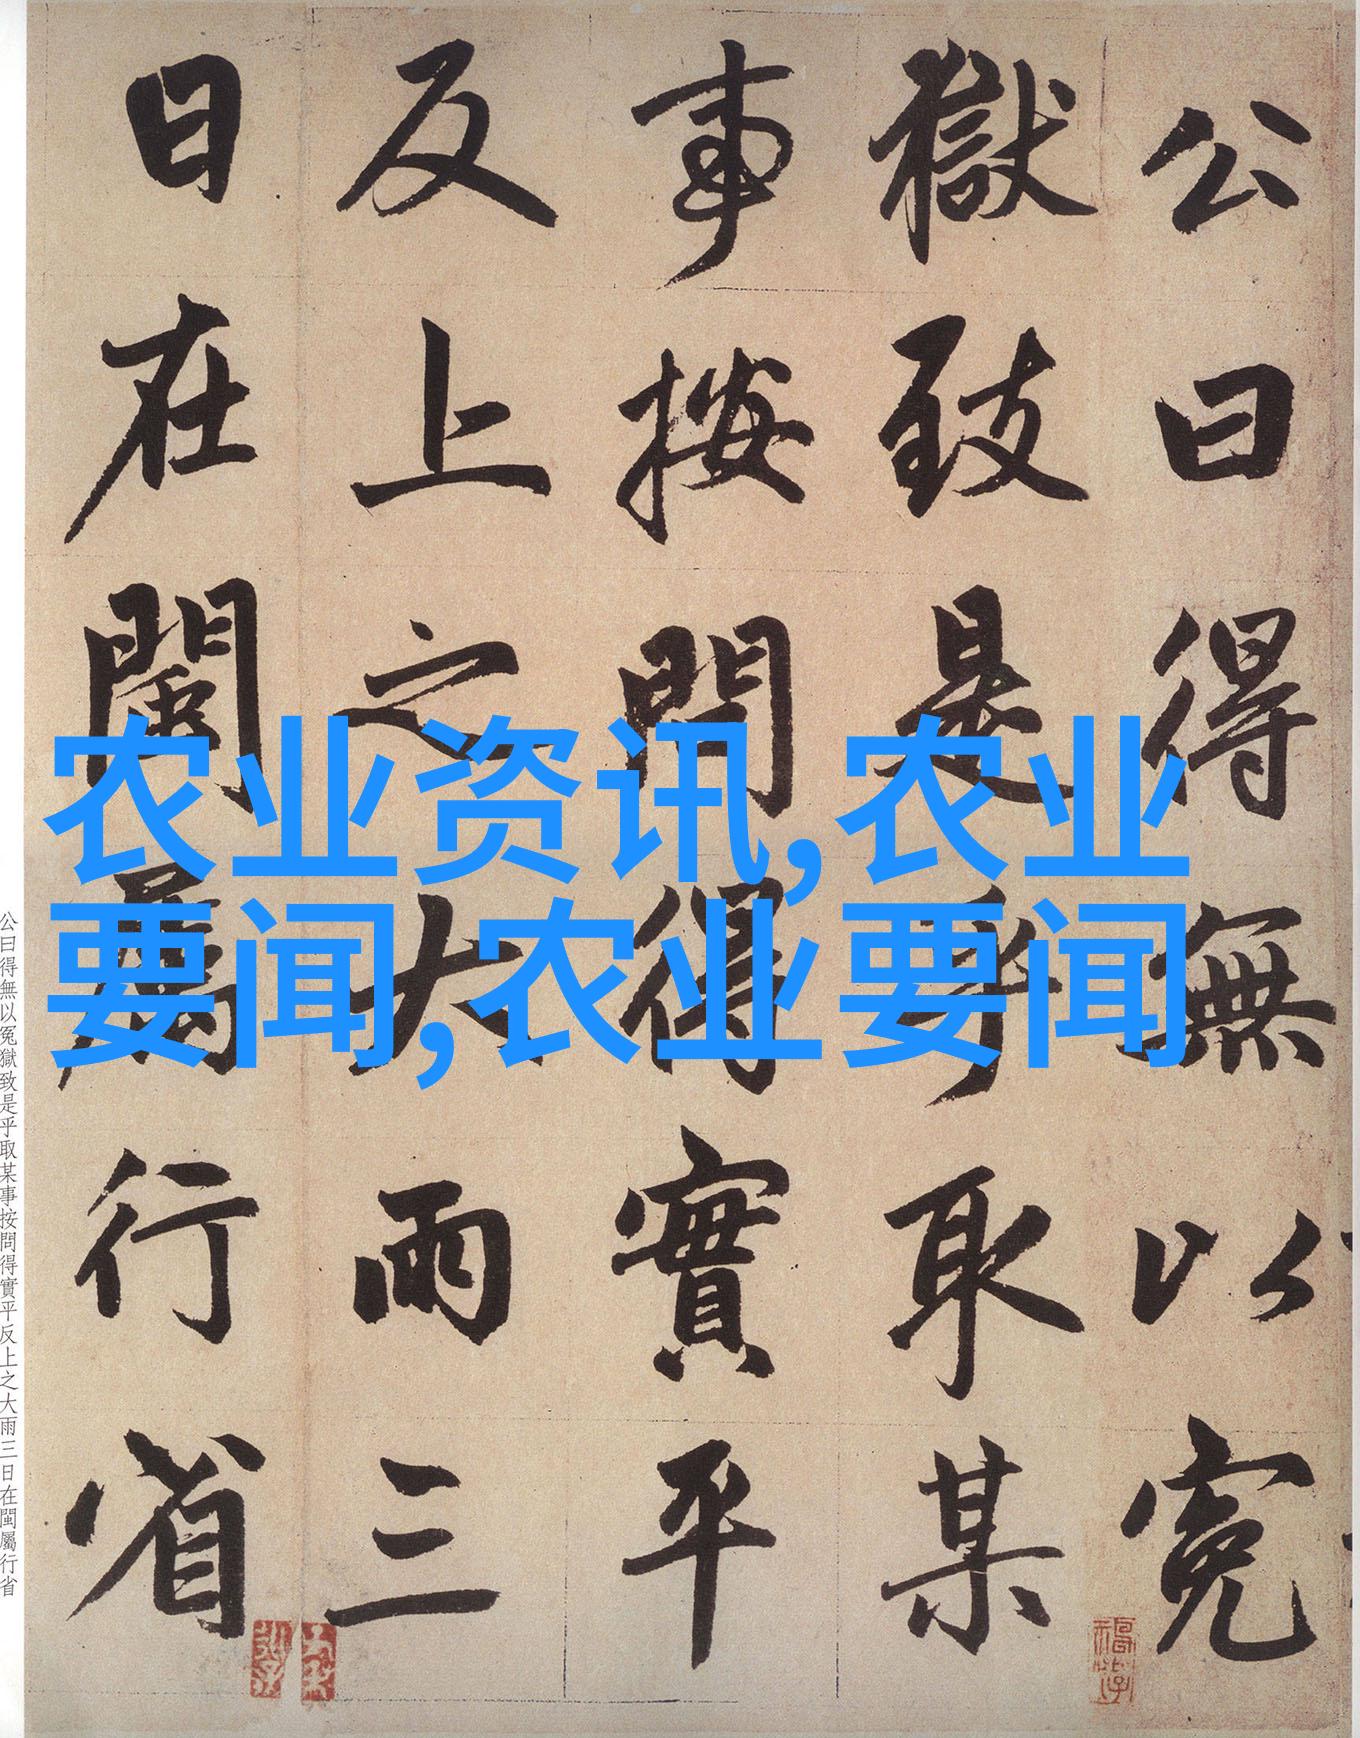 公曰得無以冤
獄致是乎取某
事按問得實平
反上之大雨三
日在閩屬行省
农业资讯,农业
要闻,农业要闻
公曰得無以冤獄致是乎取某事按問得實平反上之大雨三日在閩屬行省